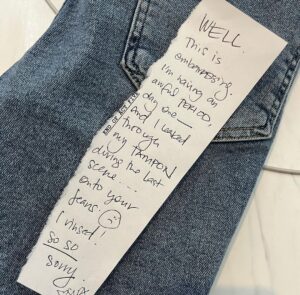 WELL.
This is
embarrassing.
I'm having an
awful PERIOD,
day one—
and I leaked
through
my TAMPON
during the last
scene...
onto your
jeans.
I rinsed!
so so
sorry.